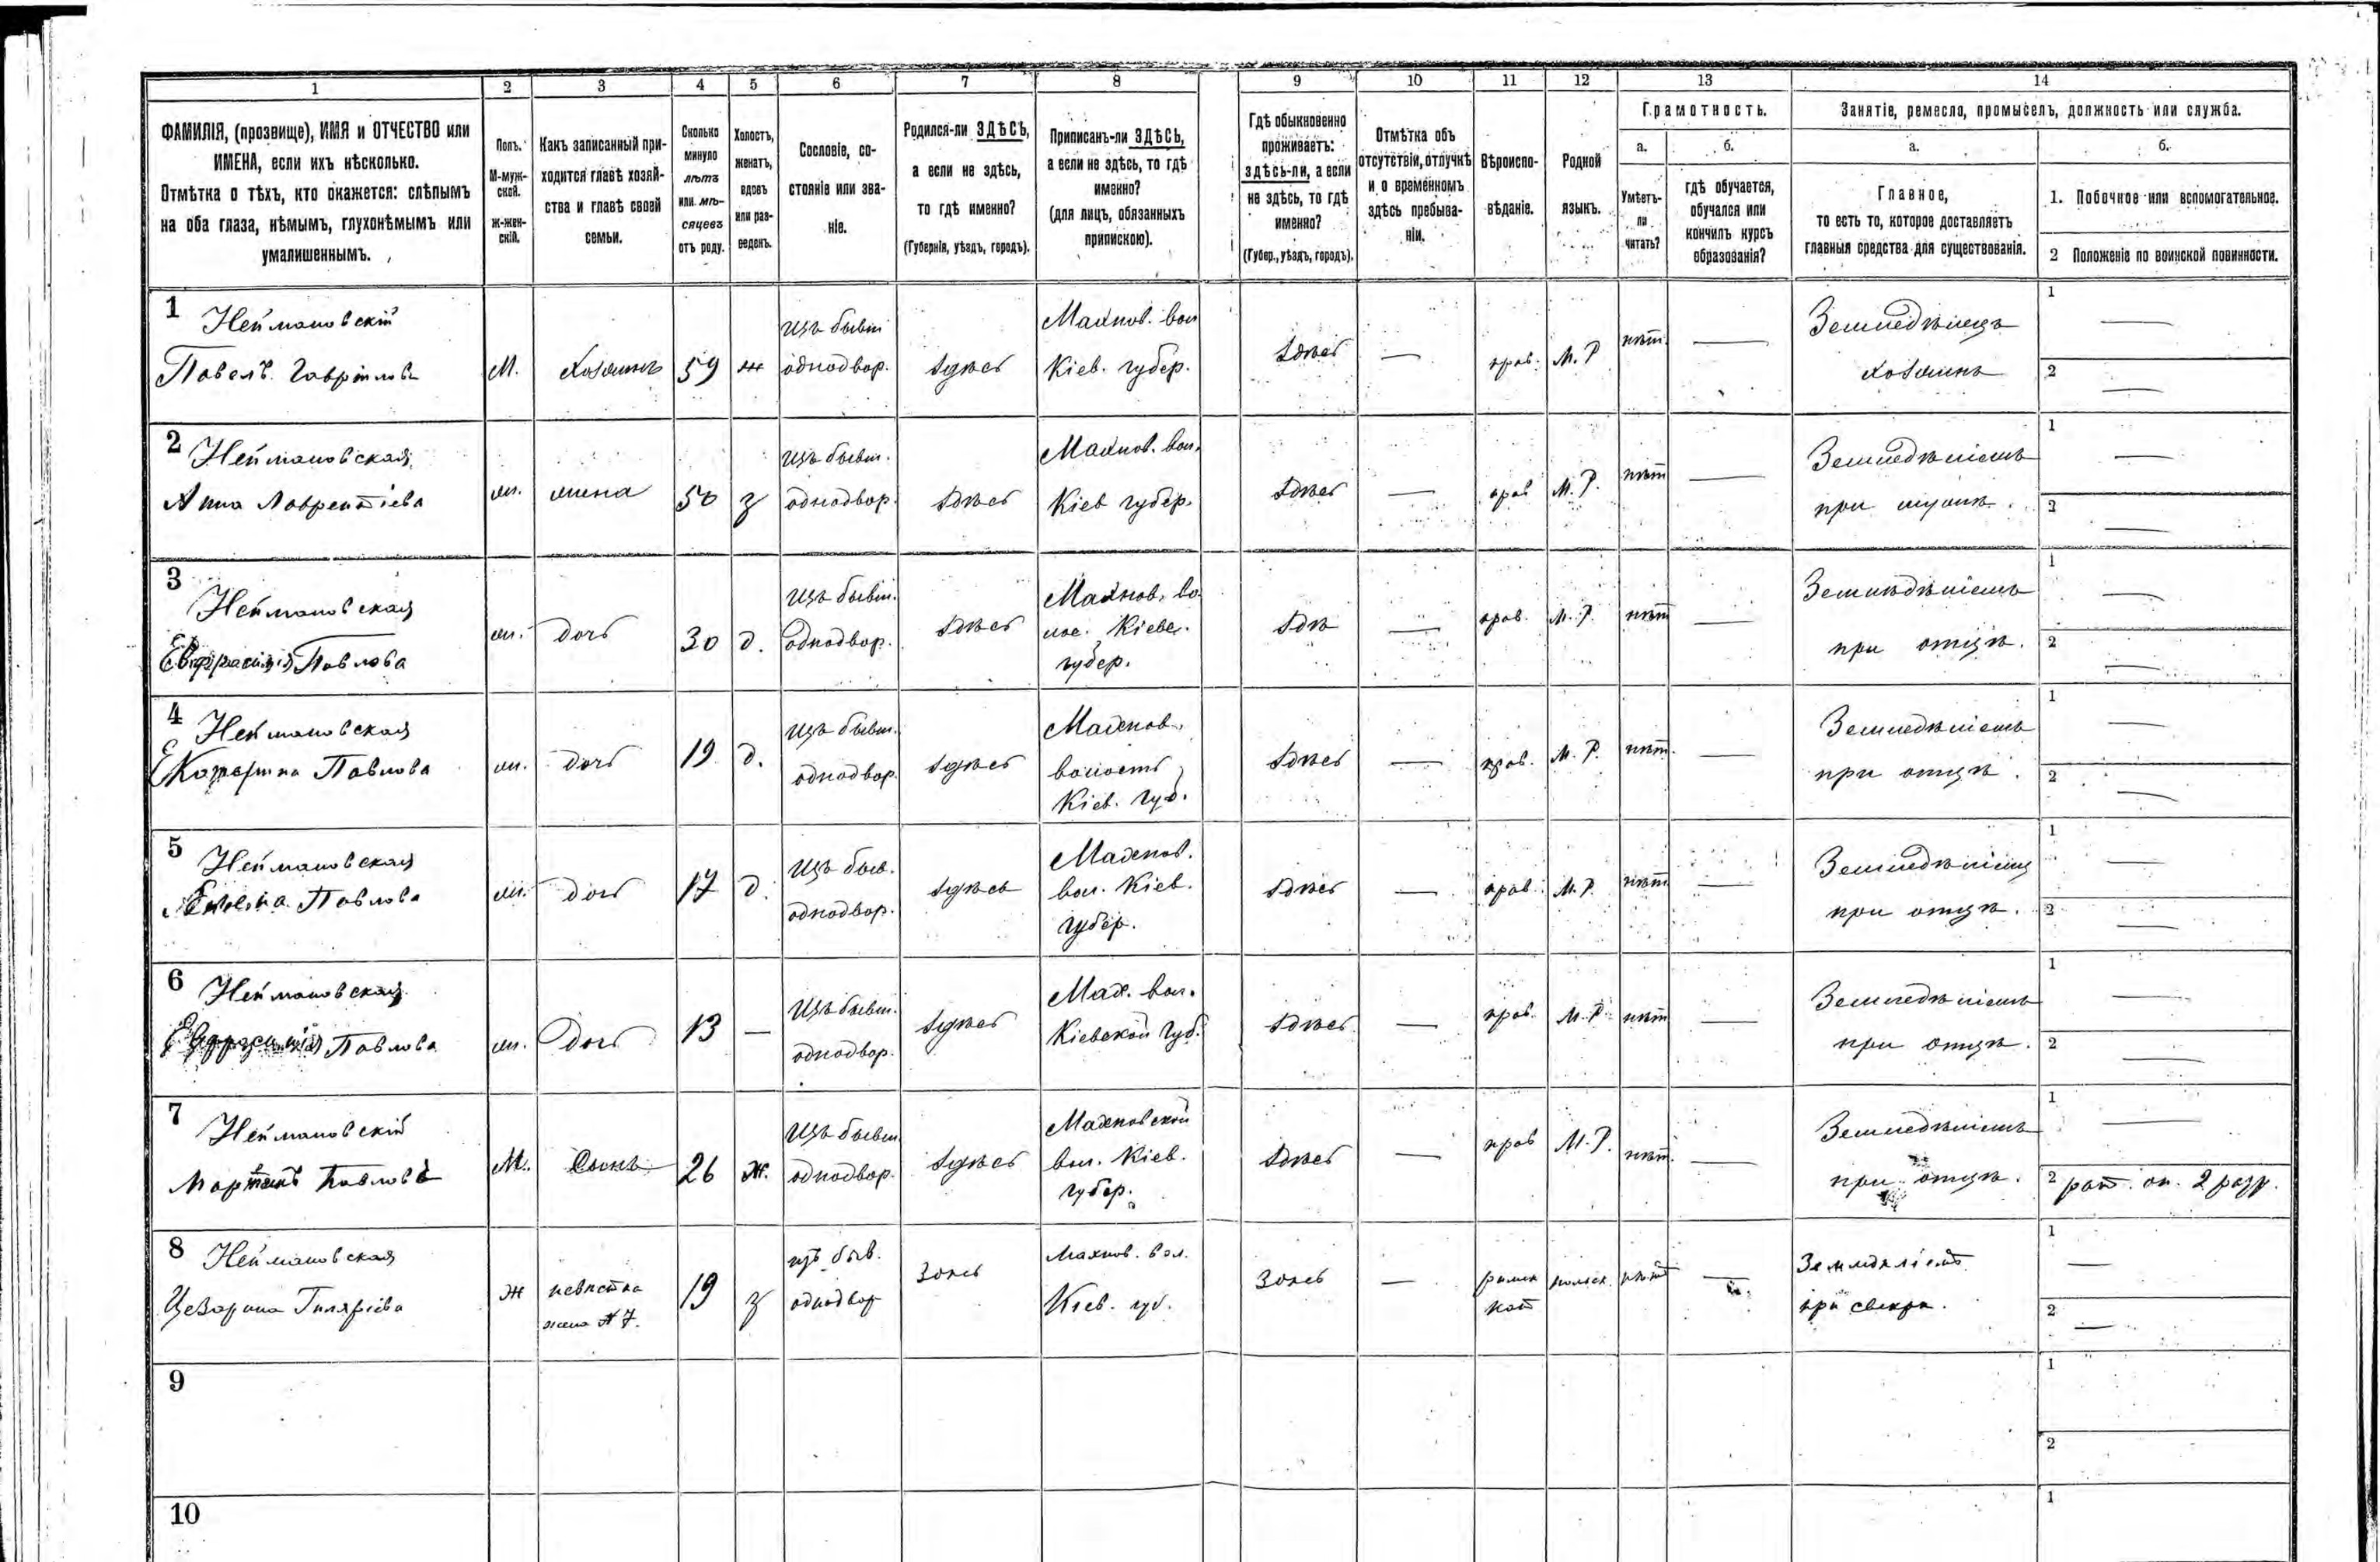 1 2 3 4 5 6 7 8 9 10 11 12 13 14
ФАМИЛІЯ, (прозвище), ИМЯ и ОТЧЕСТВО или
ИМЕНА, если ихъ нѣсколько.
Отмѣтка о тѣхъ, кто окажется: слѣпымъ
на оба глаза, нѣмымъ, глухонѣмымъ или
умалишеннымъ.
Полъ.
М-муж-
ской.
Ж-жен-
скій.
Какъ записанный при-
ходится главѣ хозяй-
ства и главѣ своей
семьи.
Сколько
минуло
лѣтъ
или мѣ-
сяцевъ
отъ роду.
Холостъ,
женатъ,
вдовъ
или раз-
веденъ.
Сословіе, со-
стояніе или зва-
ніе.
Родился-ли ЗДѢСЬ,
а если не здѣсь,
то гдѣ именно?
(Губернія, уѣздъ, городъ).
Приписанъ-ли ЗДѢСЬ,
а если не здѣсь, то гдѣ
именно?
(для лицъ, обязанныхъ
припискою).
Гдѣ обыкновенно
проживаетъ:
здѣсь-ли, а если
не здѣсь, то гдѣ
именно?
(Губер., уѣздъ, городъ).
Отмѣтка объ
отсутствіи, отлучкѣ
и о временномъ
здѣсь пребыва-
ніи.
Вѣроиспо-
вѣданіе.
Родной
языкъ.
Грамотность.
а.
Умѣетъ-
ли
читать?
б.
гдѣ обучается,
обучался или
кончилъ курсъ
образованія?
Занятіе, ремесло, промыселъ, должность или служба.
а.
Главное,
то есть то, которое доставляетъ
главныя средства для существованія.
б.
1. Побочное или вспомогательное.
2 Положеніе по воинской повинности.
1 Неймановскій
Павелъ Гаврилов
М.
хозяинъ
59
ж
изъ бывш
однодвор.
здѣсь
Махнов. вол
Кіев. губер.
здѣсь
—
прав.
М. Р
нѣт
—
Земледѣлецъ
хозяинъ
1 —
2 —
2 Неймановская
Анна Лаврентіева
ж.
жена
50
з
Изъ бывш.
однодвор.
здѣсь
Махнов. вол.
Кіев губер.
здѣсь
—
прав
М. Р.
нѣт
—
Земледѣліемъ
при мужѣ.
1 —
2 —
3 Неймановская
Павлова
ж.
дочь
30
д.
Изъ бывш.
однодвор.
здѣсь
Махнов. во
лос. Кіевс.
губер.
здѣ
—
прав.
М. Р.
нѣт
—
Земледѣліемъ
при отцѣ.
1 —
2 —
4 Неймановская
Павлова
ж.
дочь
19
д.
Изъ бывш.
однодвор.
здѣсь
Махнов.
волость
Кіев. губ.
здѣсь
—
прав.
М. Р.
нѣт.
—
Земледѣліемъ
при отцѣ.
1 —
2 —
5 Неймановская
Павлова
ж.
дочь
17
д.
Изъ быв.
однодвор.
здѣсь
Махнов.
вол. Кіев.
губер.
здѣсь
—
прав.
М. Р.
нѣт
—
Земледѣліемъ
при отцѣ.
1 —
2 —
6 Неймановская
Павлова
ж.
Дочь
13
—
Изъ бывш.
однодвор.
здѣсь
Мах. вол.
Кіевской Губ.
здѣсь
—
прав.
М. Р.
нѣт
—
Земледѣліемъ
при отцѣ.
1 —
2 —
7 Неймановскій
Павловъ
М.
Сынъ
26
ж.
Изъ бывш
однодвор.
здѣсь
Махновской
вол. Кіев.
губер.
здѣсь
—
прав
М. Р.
нѣт.
—
Земледѣліемъ
при отцѣ.
1 —
2 рат. оп. 2 разр.
8 Неймановская
Цезарина Гиляріева
ж
невѣстка
жена № 7.
19
з
изъ быв.
однодвор
здѣсь
Махнов. вол.
Кіев. губ.
здѣсь
—
римск
кат
польск.
нѣт
—
Земледѣліемъ
при свекрѣ.
1 —
2 —
9
1
2
10
1